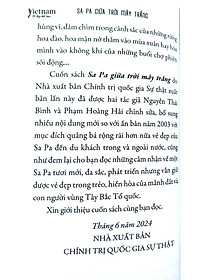 Vietnam
SA PA GIỮA TRỜI MÂY TRẮNG
hùng vĩ, đắm chìm trong cảnh sắc của những rừng
hoa đào, hoa mận nở thắm vào mùa xuân hay hòa
mình vào không khí của những buổi chợ phiên
sôi động,...
Cuốn sách Sa Pa giữa trời mây trắng do
Nhà xuất bản Chính trị quốc gia Sự thật xuất
bản lần này đã được hai tác giả Nguyễn Thái
Bình và Phạm Hoàng Hải chỉnh sửa, bổ sung
nhiều nội dung mới so với ấn bản năm 2003 với
mục đích quảng bá rộng rãi hơn nữa vẻ đẹp của
Sa Pa đến du khách trong và ngoài nước, cũng
như đem lại cho bạn đọc những cảm nhận về một
Sa Pa tươi mới, đa sắc, phát triển nhưng vẫn giữ
được vẻ đẹp trong trẻo, hiền hòa của mảnh đất và
con người vùng Tây Bắc Tổ quốc.
Xin giới thiệu cuốn sách cùng bạn đọc.
Tháng 6 năm 2024
NHÀ XUẤT BẢN
CHÍNH TRỊ QUỐC GIA SỰ THẬT